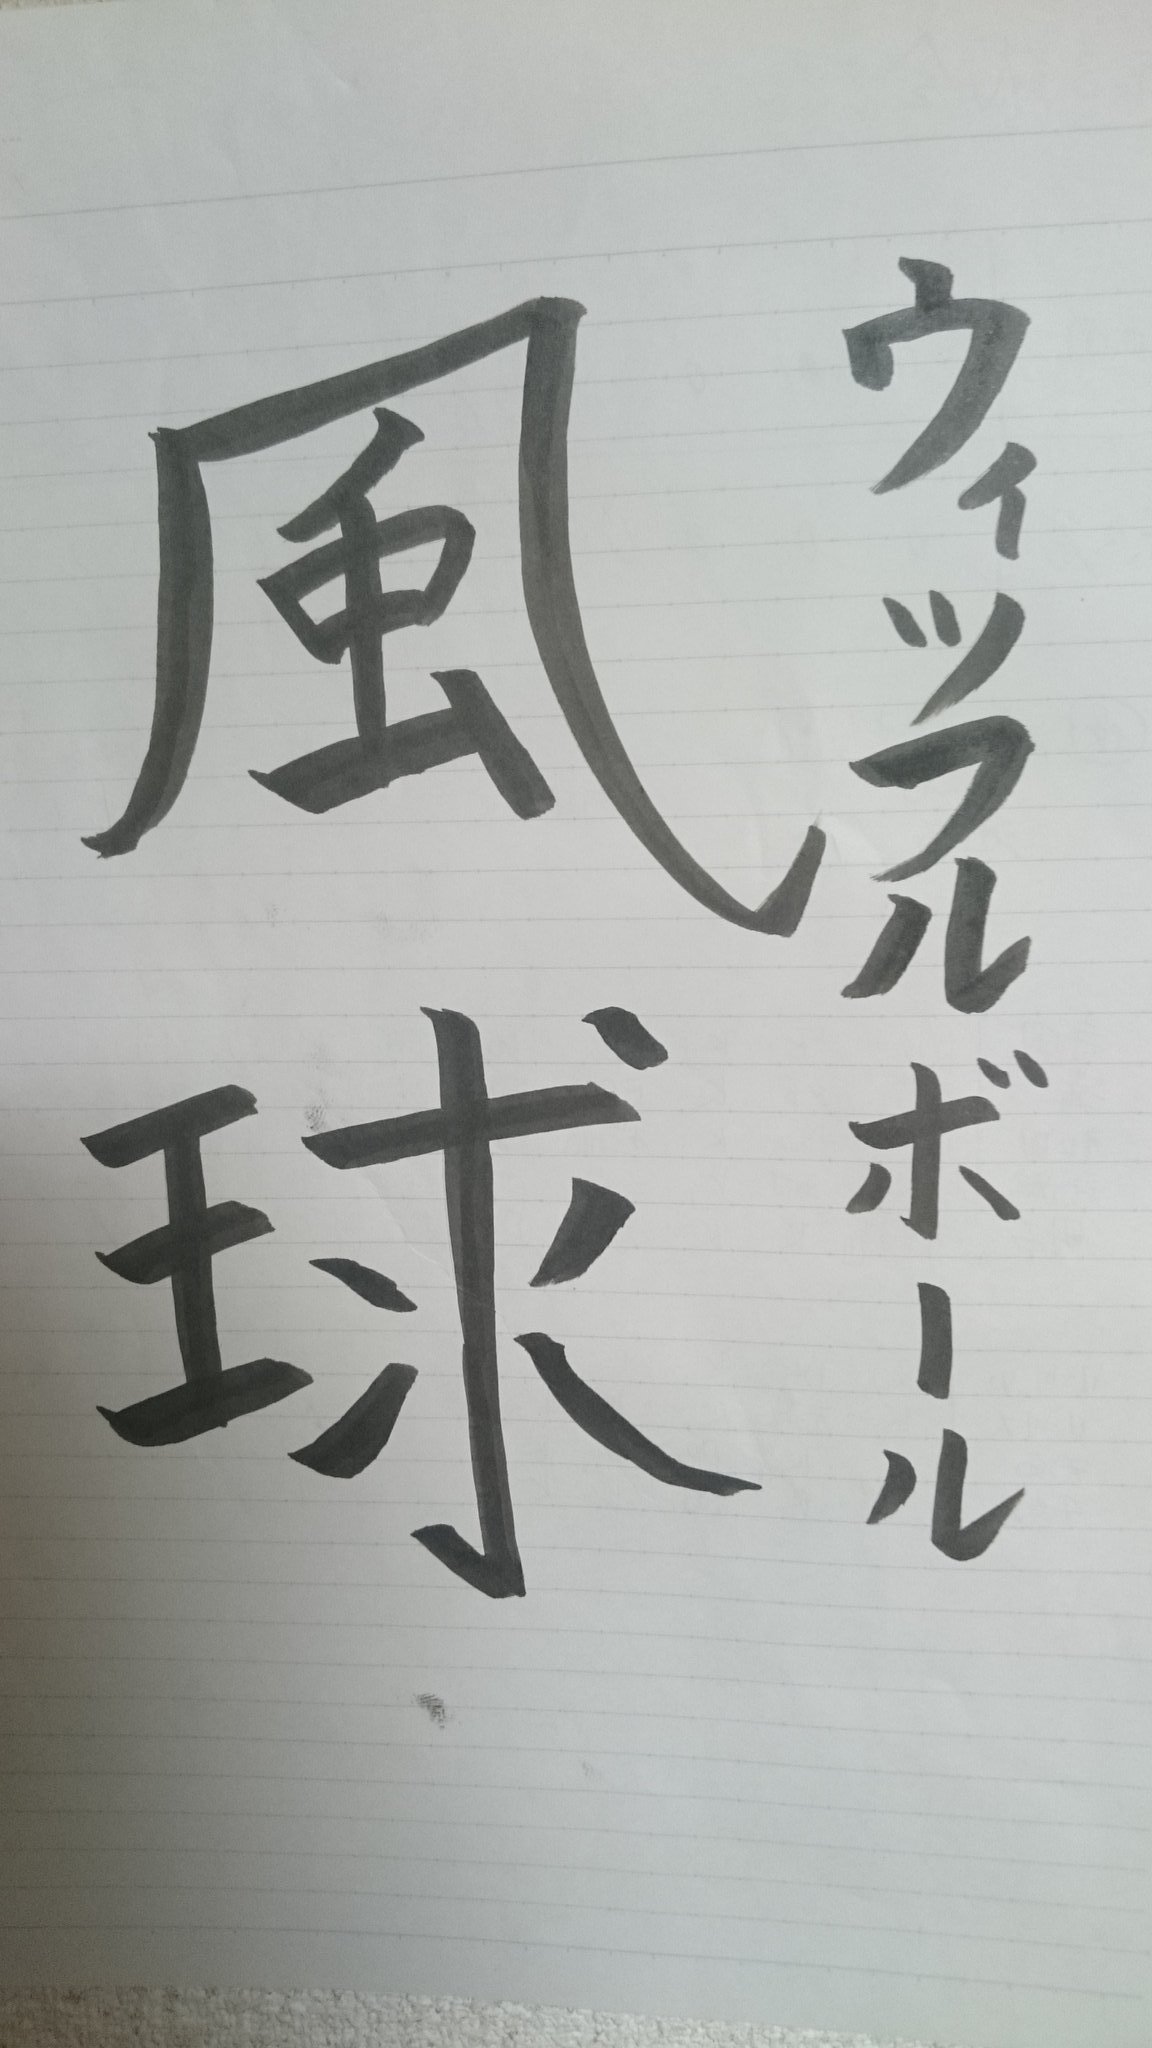 ウィッフルボール
風球